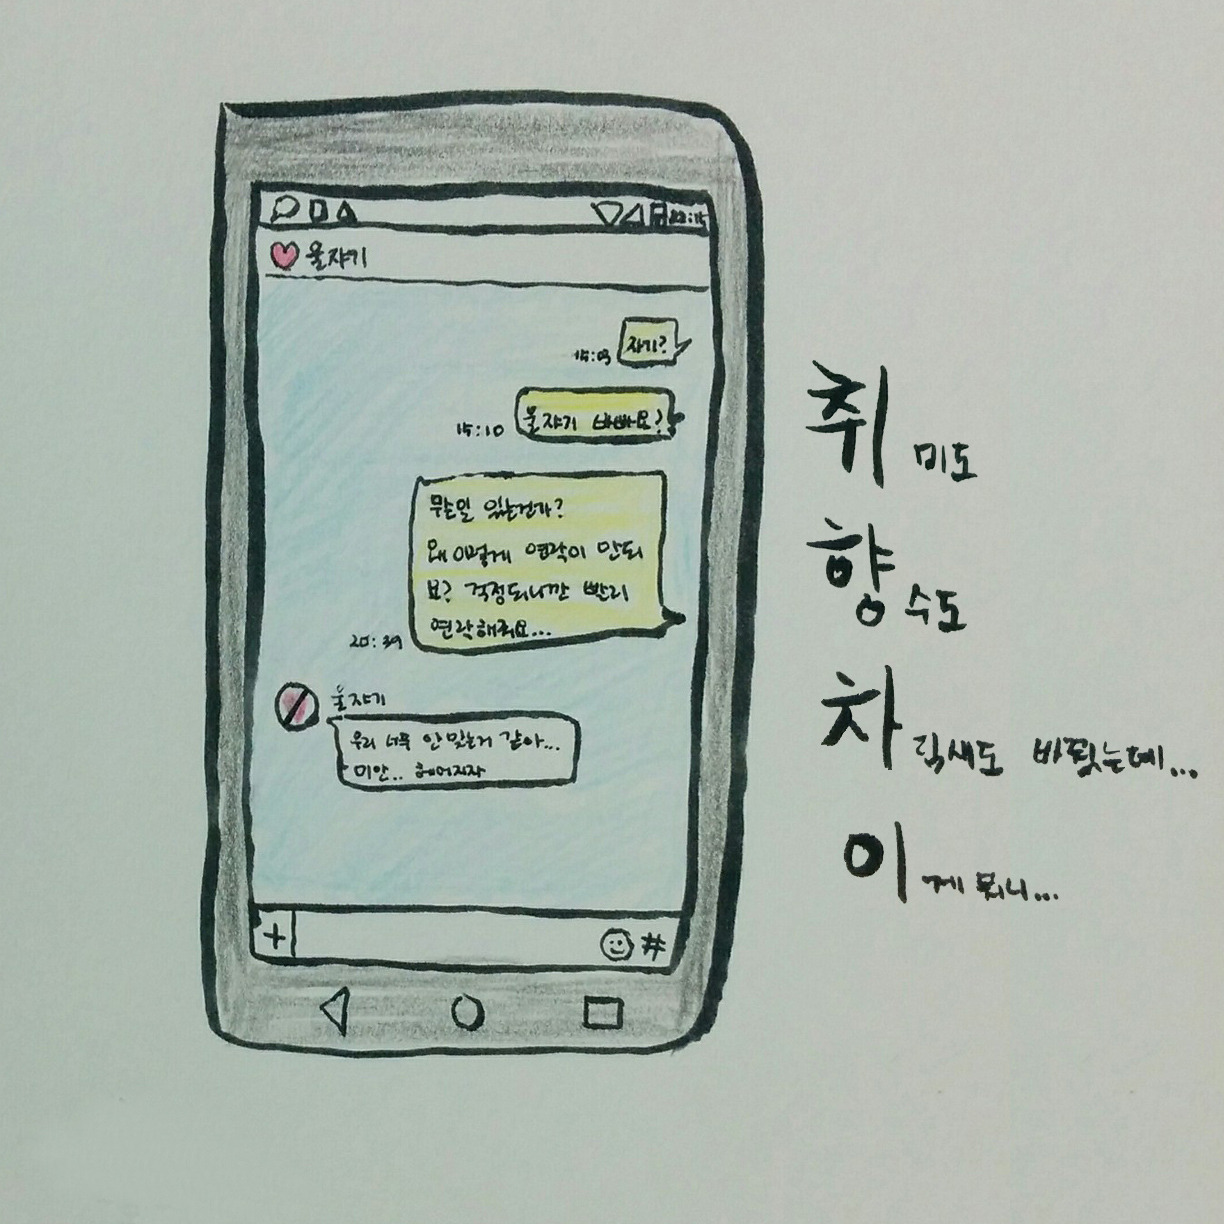 울쟈기
자기?
15:09
울쟈기 바빠요?
15:10
무슨일 있는건가?
왜 이렇게 연락이 안되
요? 걱정되니깐 빨리
연락해줘요...
20:39
울쟈기
우리 너무 안 맞는거 같아...
미안.. 헤어지자
#
취미도
향수도
차 색도 바꿨는데...
이게 뭐니...